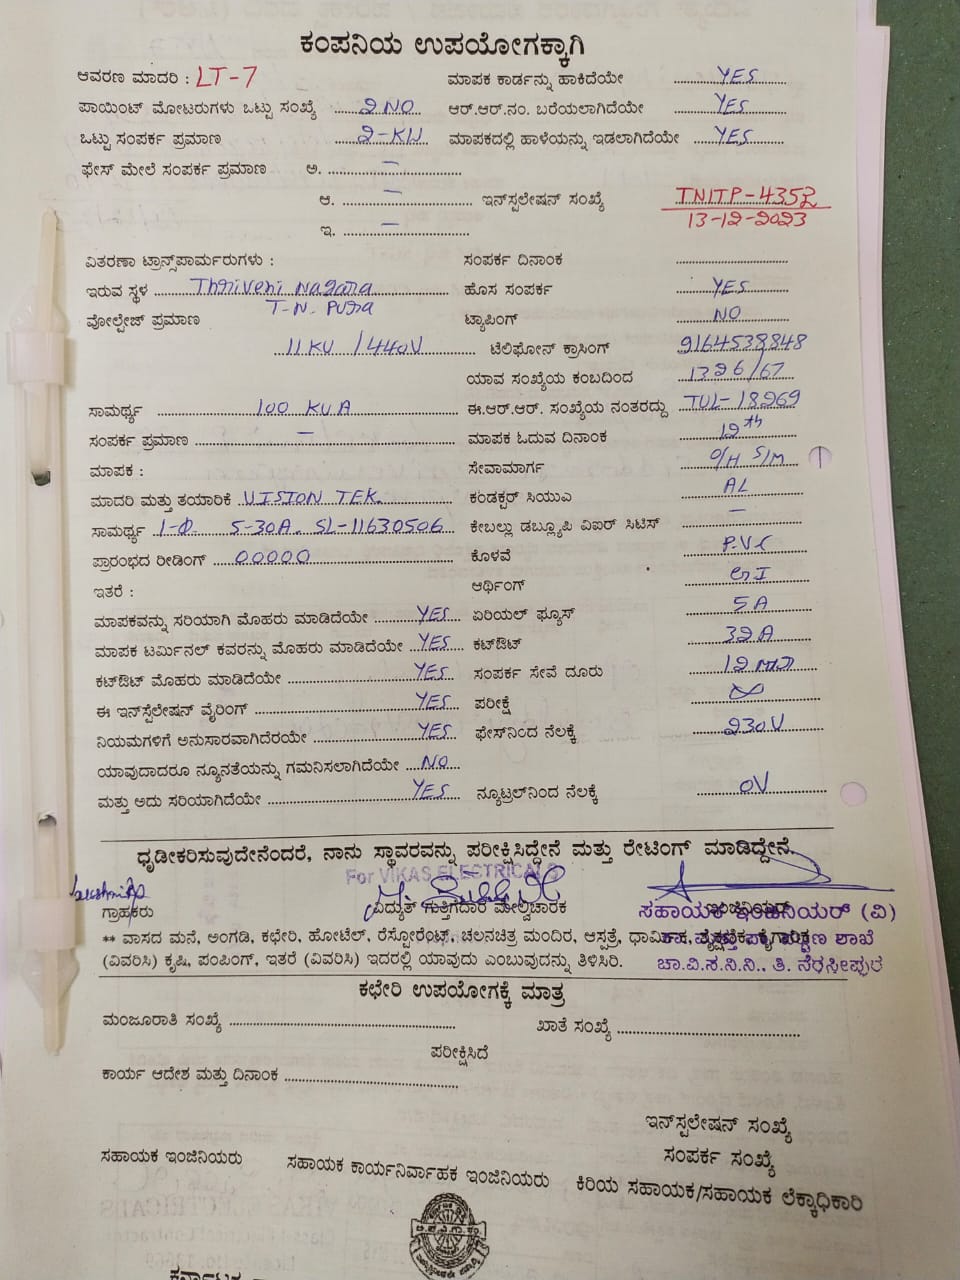 ಕಂಪನಿಯ ಉಪಯೋಗಕ್ಕಾಗಿ
ಆವರಣ ಮಾದರಿ : LT-7 ಮಾಪಕ ಕಾರ್ಡನ್ನು ಹಾಕಿದೆಯೇ YES
ಪಾಯಿಂಟ್ ಮೋಟರುಗಳು ಒಟ್ಟು ಸಂಖ್ಯೆ 2 NO ಆರ್.ಆರ್.ನಂ. ಬರೆಯಲಾಗಿದೆಯೇ YES
ಒಟ್ಟು ಸಂಪರ್ಕ ಪ್ರಮಾಣ 2-KW ಮಾಪಕದಲ್ಲಿ ಹಾಳೆಯನ್ನು ಇಡಲಾಗಿದೆಯೇ YES
ಫೇಸ್ ಮೇಲೆ ಸಂಪರ್ಕ ಪ್ರಮಾಣ ಅ. –
ಆ. – ಇನ್‌ಸ್ಟಲೇಷನ್ ಸಂಖ್ಯೆ TNITP-4352
ಇ. – 13-12-2023
ವಿತರಣಾ ಟ್ರಾನ್ಸ್‌ಪಾರ್ಮರುಗಳು : ಸಂಪರ್ಕ ದಿನಾಂಕ
ಇರುವ ಸ್ಥಳ Thriveni Nagara ಹೊಸ ಸಂಪರ್ಕ YES
T-N. Pura
ವೋಲ್ಟೇಜ್ ಪ್ರಮಾಣ ಟ್ಯಾಪಿಂಗ್ NO
11 KV / 440V ಟೆಲಿಫೋನ್ ಕ್ರಾಸಿಂಗ್ 9164538848
ಯಾವ ಸಂಖ್ಯೆಯ ಕಂಬದಿಂದ 1326/67
ಸಾಮರ್ಥ್ಯ 100 KVA ಈ.ಆರ್.ಆರ್. ಸಂಖ್ಯೆಯ ನಂತರದ್ದು TVL-18269
ಸಂಪರ್ಕ ಪ್ರಮಾಣ – ಮಾಪಕ ಓದುವ ದಿನಾಂಕ 12th
ಮಾಪಕ : ಸೇವಾಮಾರ್ಗ O/H S/M
ಮಾದರಿ ಮತ್ತು ತಯಾರಿಕೆ VISION TEK. ಕಂಡಕ್ಟರ್ ಸಿಯುಎ AL
ಸಾಮರ್ಥ್ಯ 1-Φ. 5-30A. SL-11630506 ಕೇಬಲ್ಲು ಡಬ್ಲ್ಯೂಪಿ ವಿಐರ್ ಸಿಟಿಸ್ –
ಪ್ರಾರಂಭದ ರೀಡಿಂಗ್ 00000 ಕೊಳವೆ P.V.C
ಇತರೆ : ಆರ್ಥಿಂಗ್ GI
ಮಾಪಕವನ್ನು ಸರಿಯಾಗಿ ಮೊಹರು ಮಾಡಿದೆಯೇ YES ಏರಿಯಲ್ ಫ್ಯೂಸ್ 5A
ಮಾಪಕ ಟರ್ಮಿನಲ್ ಕವರನ್ನು ಮೊಹರು ಮಾಡಿದೆಯೇ YES ಕಟ್‌ಔಟ್ 32A
ಕಟ್‌ಔಟ್ ಮೊಹರು ಮಾಡಿದೆಯೇ YES ಸಂಪರ್ಕ ಸೇವೆ ದೂರು
ಈ ಇನ್‌ಸ್ಟಲೇಷನ್ ವೈರಿಂಗ್ YES ಪರೀಕ್ಷೆ ∞
ನಿಯಮಗಳಿಗೆ ಅನುಸಾರವಾಗಿದೆರಯೇ YES ಫೇಸ್‌ನಿಂದ ನೆಲಕ್ಕೆ 230V
ಯಾವುದಾದರೂ ನ್ಯೂನತೆಯನ್ನು ಗಮನಿಸಲಾಗಿದೆಯೇ NO
ಮತ್ತು ಅದು ಸರಿಯಾಗಿದೆಯೇ YES ನ್ಯೂಟ್ರಲ್‌ನಿಂದ ನೆಲಕ್ಕೆ 0V
ಧೃಡೀಕರಿಸುವುದೇನೆಂದರೆ, ನಾನು ಸ್ಥಾವರವನ್ನು ಪರೀಕ್ಷಿಸಿದ್ದೇನೆ ಮತ್ತು ರೇಟಿಂಗ್ ಮಾಡಿದ್ದೇನೆ.
For VIKAS ELECTRICALS
ಗ್ರಾಹಕರು ವಿದ್ಯುತ್ ಗುತ್ತಿಗೆದಾರ ಮೇಲ್ವಿಚಾರಕ ಸಹಾಯಕ ಇಂಜಿನಿಯರ್ (ವಿ)
** ವಾಸದ ಮನೆ, ಅಂಗಡಿ, ಕಛೇರಿ, ಹೋಟೆಲ್, ರೆಸ್ಟೋರೆಂಟ್, ಚಲನಚಿತ್ರ ಮಂದಿರ, ಆಸ್ಪತ್ರೆ, ಧಾರ್ಮಿಕ,
(ವಿವರಿಸಿ) ಕೃಷಿ, ಪಂಪಿಂಗ್, ಇತರೆ (ವಿವರಿಸಿ) ಇದರಲ್ಲಿ ಯಾವುದು ಎಂಬುವುದನ್ನು ತಿಳಿಸಿರಿ. ಚಾ.ವಿ.ಸ.ನಿ.ನಿ., ತಿ. ನರಸೀಪುರ
ಕಛೇರಿ ಉಪಯೋಗಕ್ಕೆ ಮಾತ್ರ
ಮಂಜೂರಾತಿ ಸಂಖ್ಯೆ ಖಾತೆ ಸಂಖ್ಯೆ
ಪರೀಕ್ಷಿಸಿದೆ
ಕಾರ್ಯ ಆದೇಶ ಮತ್ತು ದಿನಾಂಕ
ಇನ್‌ಸ್ಟಲೇಷನ್ ಸಂಖ್ಯೆ
ಸಂಪರ್ಕ ಸಂಖ್ಯೆ
ಸಹಾಯಕ ಇಂಜಿನಿಯರು ಸಹಾಯಕ ಕಾರ್ಯನಿರ್ವಾಹಕ ಇಂಜಿನಿಯರು ಕಿರಿಯ ಸಹಾಯಕ/ಸಹಾಯಕ ಲೆಕ್ಕಾಧಿಕಾರಿ